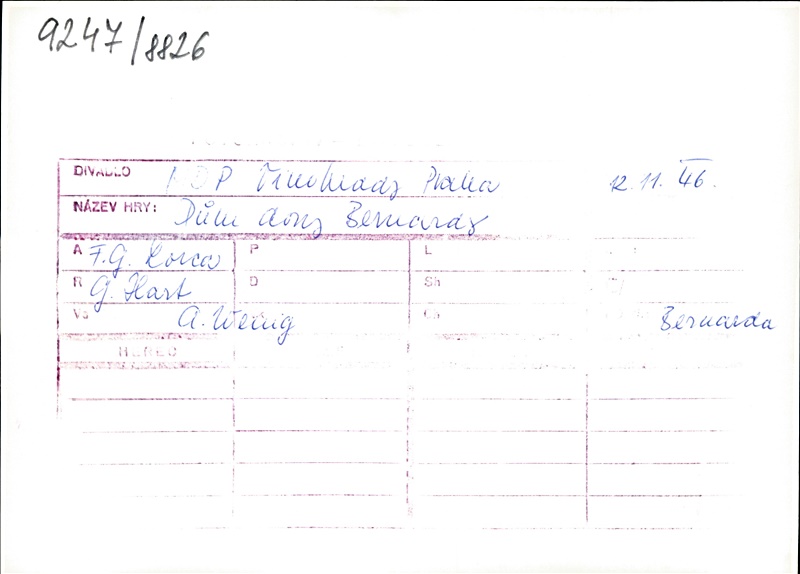 9247/8826
DIVADLO MDP Vinohrady Praha 12.11.46.
NÁZEV HRY: Dům dony Bernardy
A F.G. Lorca P L
R G. Hart D Sh
Vs A. Wenig Ch Bernarda
HEREC